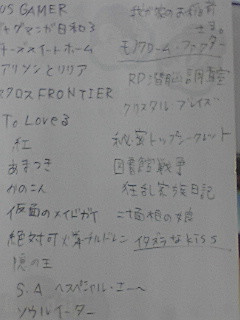 GAMER
ャグマンガ日和3
ーズスイートホーム
アリソンとリリア
クロスFRONTIER
To Loveる
紅
あまつき
かのこん
仮面のメイドガイ
絶対可憐チルドレン
隠の王
S.A ~スペシャル・エー~
ソウルイーター
我が家のお稲荷
さま。
モノクローム・ファクター
RD潜脳調査室
クリスタル・ブレイズ
秘密トップシークレット
図書館戦争
狂乱家族日記
二十面相の娘
イタズラなkiss